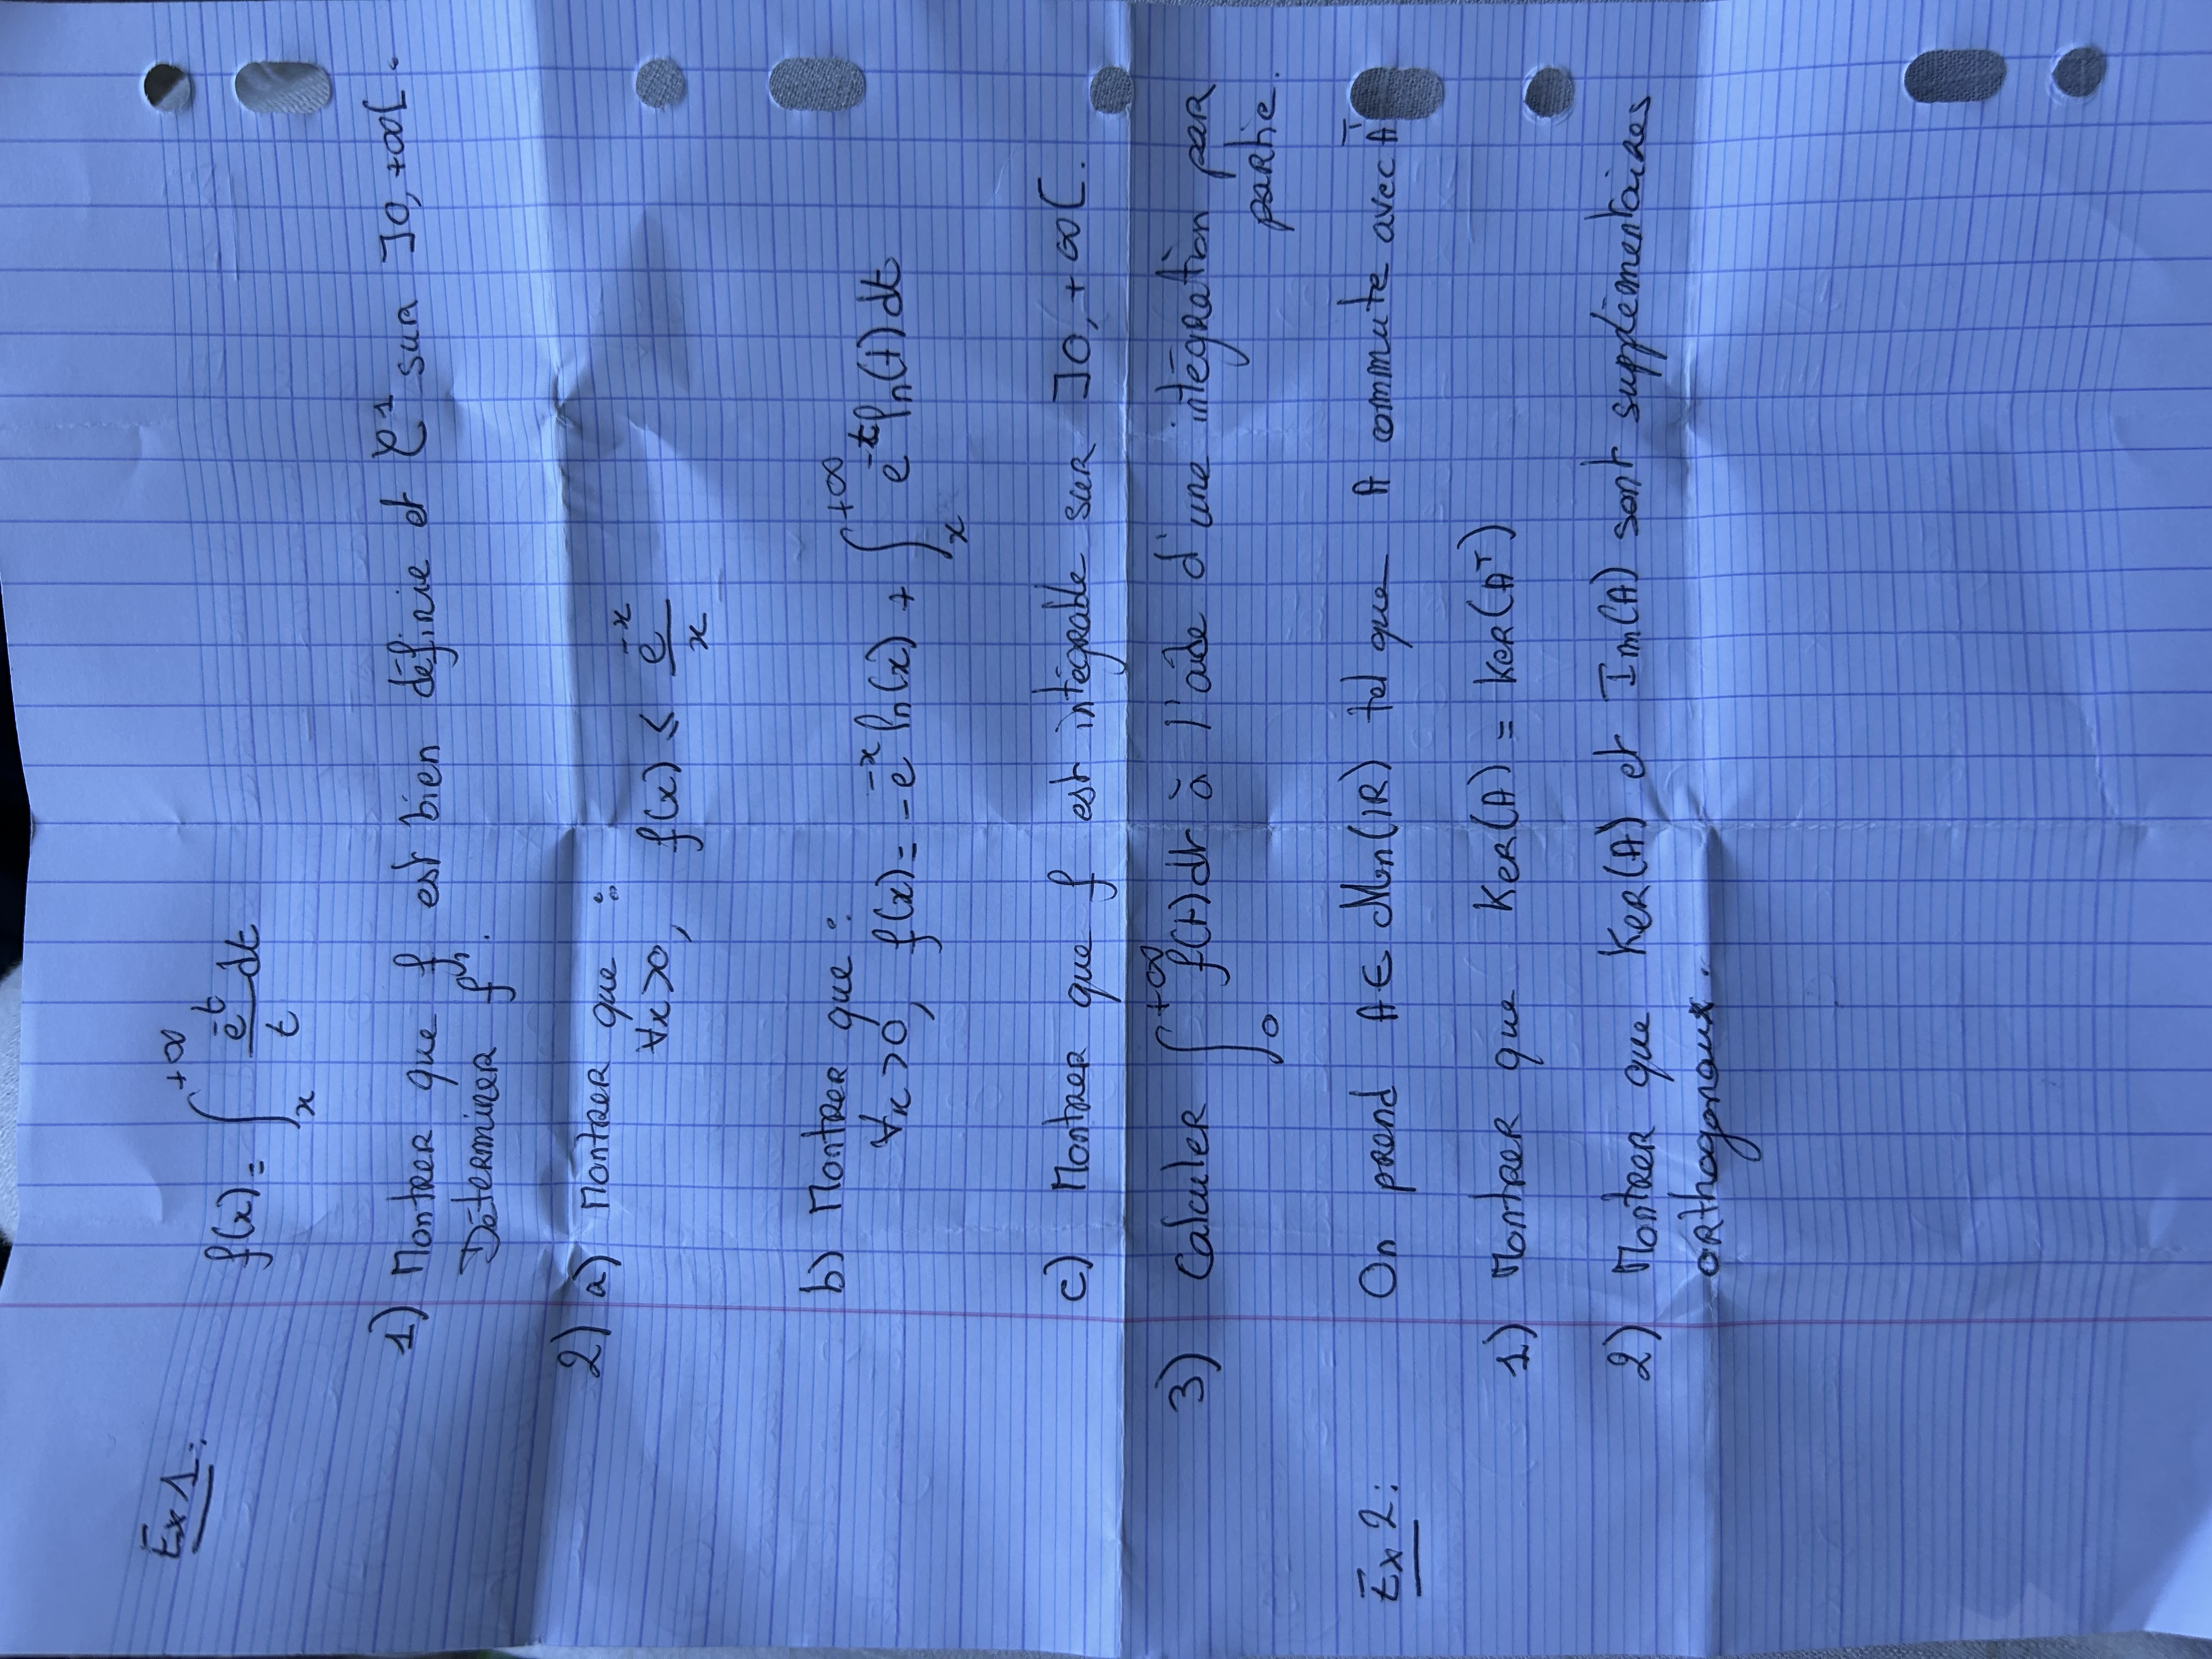 Ex 1:
f(x) = ∫_x^{+∞} e^{-t}/t dt
1) Montrer que f est bien définie et C^1 sur ]0, +∞[.
Déterminer f'.
2) a) Montrer que :
∀x>0, f(x) ≤ e^{-x}/x
b) Montrer que :
∀x>0, f(x) = -e^{-x} ln(x) + ∫_x^{+∞} e^{-t} ln(t) dt
c) Montrer que f est intégrable sur ]0, +∞[.
3) Calculer ∫_0^{+∞} f(t) dt à l'aide d'une intégration par
partie.
Ex 2:
On prend A ∈ Mn(IR) tel que A commute avec A^T
1) Montrer que Ker(A) = Ker(A^T)
2) Montrer que Ker(A) et Im(A) sont supplémentaires
orthogonaux.